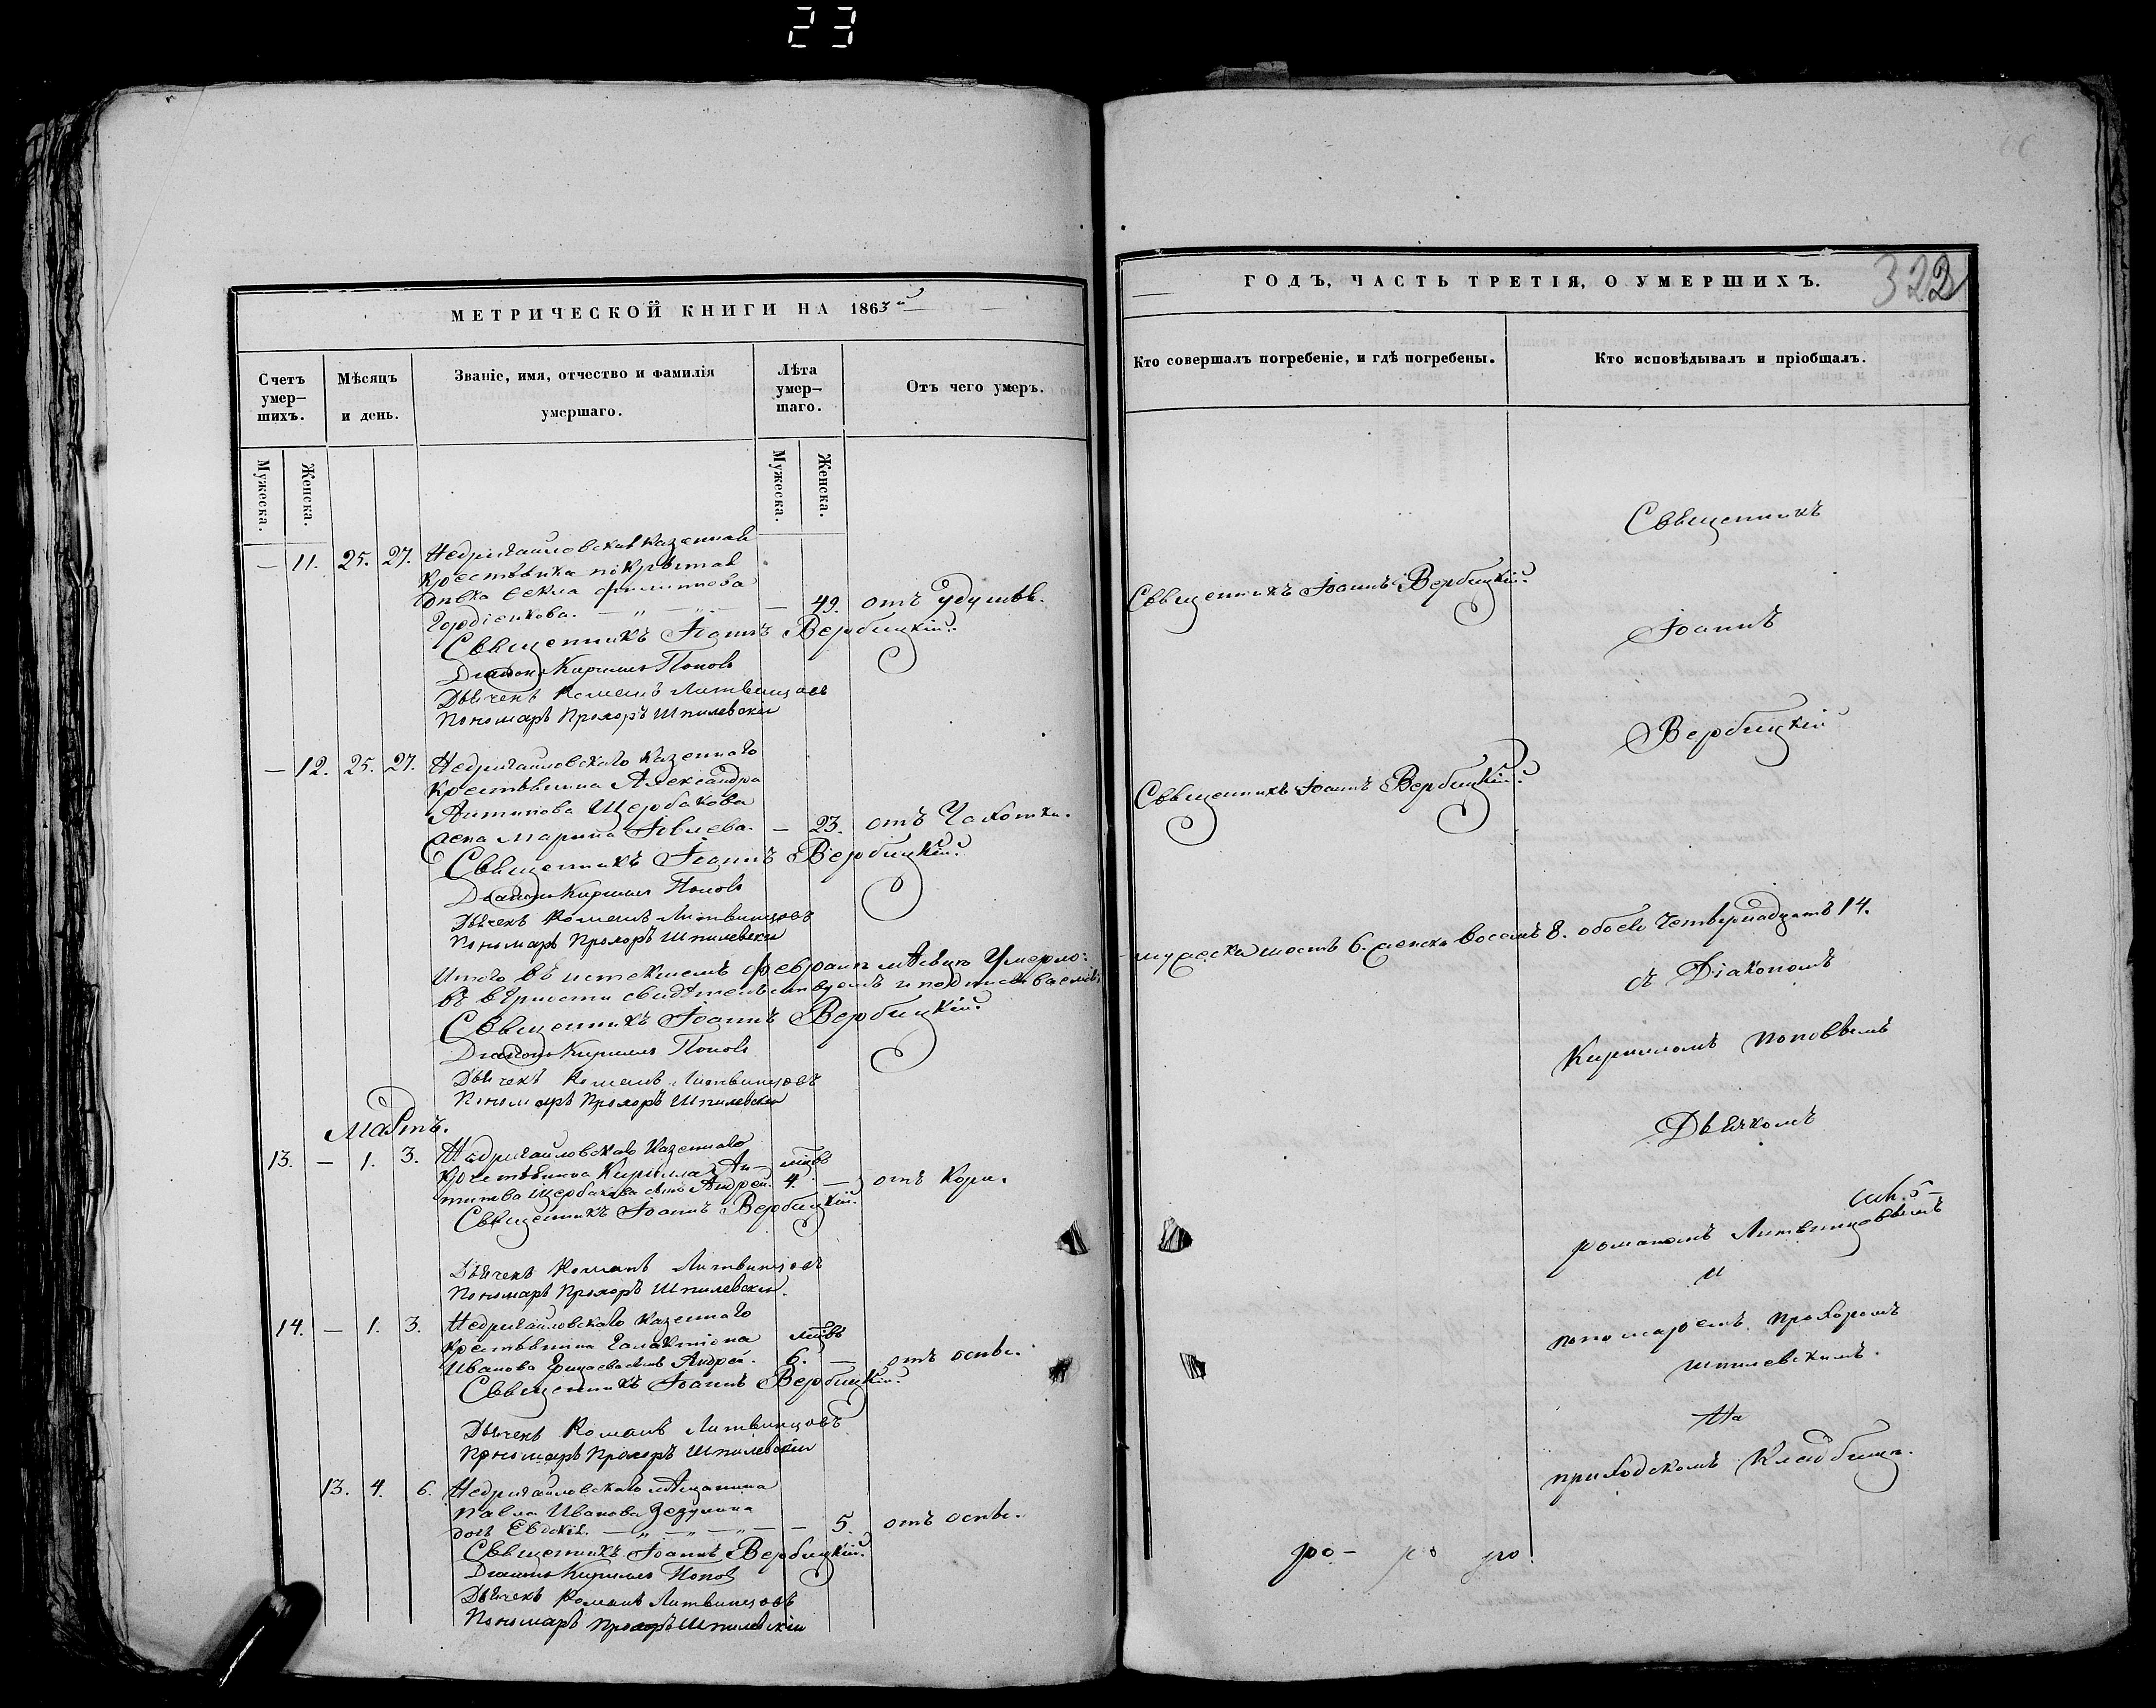 23
МЕТРИЧЕСКОЙ КНИГИ НА 1863й
Счетъ умер-
шихъ.
Мѣсяцъ
и день.
Званіе, имя, отчество и фамилія
умершаго.
Лѣта
умер-
шаго.
Отъ чего умеръ.
Мужеска.
Женска.
Мужеска.
Женска.
— 11. 25. 27. Недригайловская казенная
крестьянка
дѣвка Ѳекла Филиппова
Гордіенкова. — 49. отъ удушья.
Священникъ Іоаннъ Вербицкій.
Діаконъ Кириллъ Поповъ
Дьячекъ Романъ Литвинцовъ
Пономарь Прохоръ Шпилевскій
— 12. 25. 27. Недригайловскаго казеннаго
крестьянина Александра
Антипова Щербакова
жена Марина Іовлева. — 23. отъ Чахотки.
Священникъ Іоаннъ Вербицкій.
Діаконъ Кириллъ Поповъ
Дьячекъ Романъ Литвинцовъ
Пономарь Прохоръ Шпилевскій
Итого въ истекшемъ февралѣ мѣсяцѣ Умерло:
въ вѣрности свидѣтельствуемъ и подписываемся
Священникъ Іоаннъ Вербицкій.
Діаконъ Кириллъ Поповъ
Дьячекъ Романъ Литвинцовъ
Пономарь Прохоръ Шпилевскій
Мартъ.
13. — 1. 3. Недригайловскаго казеннаго
крестьянина Кирилла Ан- мѣсв
типова Щербакова сынъ Андрей. 4. — отъ Кори.
Священникъ Іоаннъ Вербицкій.
Дьячекъ Романъ Литвинцовъ
Пономарь Прохоръ Шпилевскій.
14. — 1. 3. Недригайловскаго казеннаго
крестьянина Галактіона мѣсв
Иванова сынъ Андрей. 6. — отъ оспы.
Священникъ Іоаннъ Вербицкій.
Дьячекъ Романъ Литвинцовъ
Пономарь Прохоръ Шпилевскій
13. 4. 6. Недригайловскаго мѣщанина
Павла Иванова Зезулина
дочь Евдокія. — 5. отъ оспы.
Священникъ Іоаннъ Вербицкій.
Діаконъ Кириллъ Поповъ
Дьячекъ Романъ Литвинцовъ
Пономарь Прохоръ Шпилевскій
ГОДЪ, ЧАСТЬ ТРЕТІЯ, О УМЕРШИХЪ.
322
Кто совершалъ погребеніе, и гдѣ погребены.
Кто исповѣдывалъ и пріобщалъ.
Священникъ
Священникъ Іоаннъ Вербицкій.
Іоаннъ
Вербицкій
Священникъ Іоаннъ Вербицкій.
мужеска шесть 6. женска восемь 8. обоего четырнадцать 14.
съ Діакономъ
Кирилломъ Поповымъ
Дьячкомъ
Романомъ Литвинцовымъ
и
пономаремъ Прохоромъ
Шпилевскимъ.
На
приходскомъ Кладбищѣ.